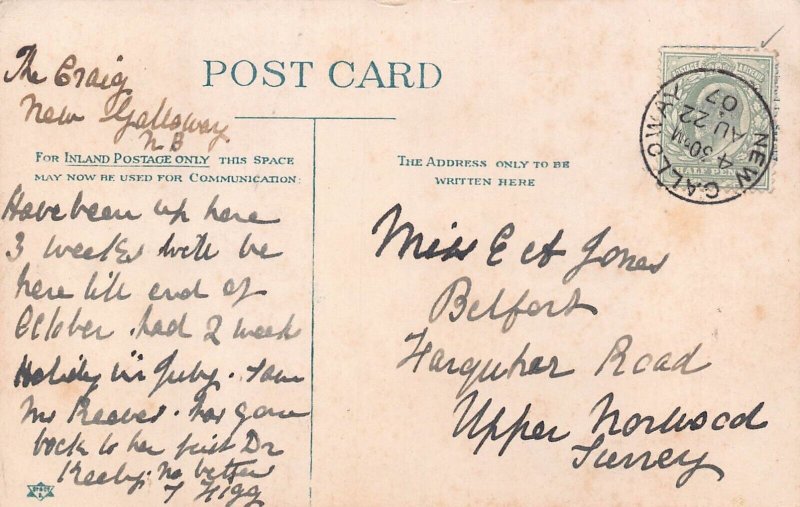 POST CARD
The Craig
New Galloway
N B
FOR INLAND POSTAGE ONLY THIS SPACE
MAY NOW BE USED FOR COMMUNICATION:
Have been up here
3 weeks will be
here till end of
October. had 2 week
Holiday in July.
Mr Reeves. has gone
back to her first Dr
no better
THE ADDRESS ONLY TO BE
WRITTEN HERE
Miss E A Jones
Belfort
Farquhar Road
Upper Norwood
Surrey
POSTAGE
HALF PEN
NEW GALLOWAY
4 30 PM
AU 22
07